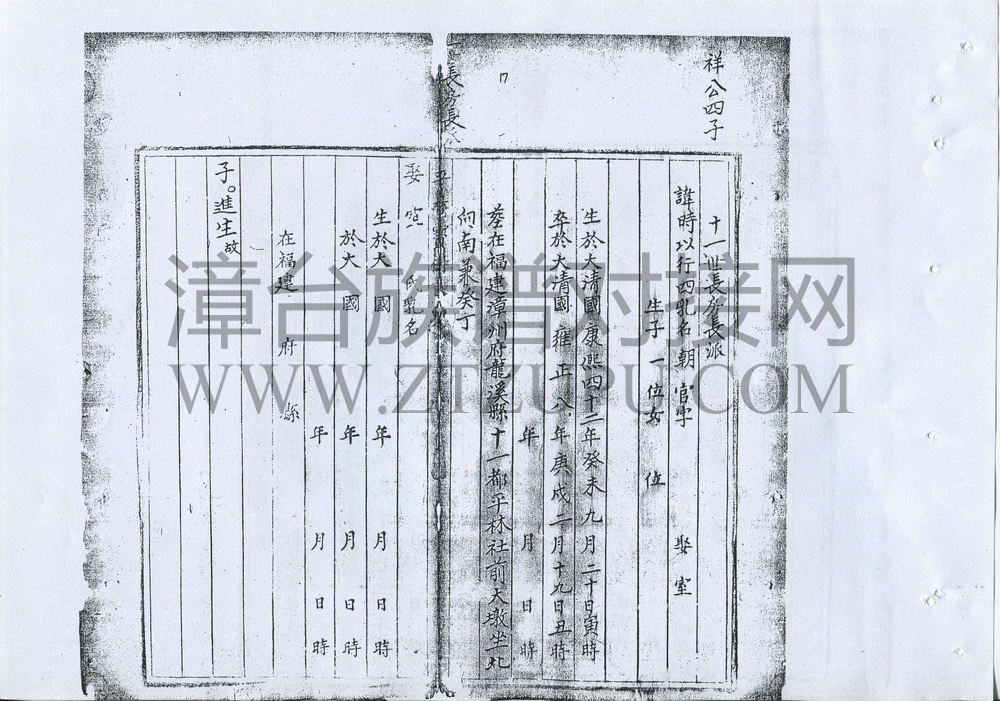 祥公四子
十一世長房長派
諱時以行四乳名朝官字 娶室
生子一位女 位
生於大清國康熙四十二年癸未九月二十日寅時
卒於大清國雍正八年庚戌二月十九日丑時
年 月 日 時
葬在福建漳州府龍溪縣十一都平林社前大墩坐北
向南兼癸丁
長房長
娶室 氏乳名
生於大 國 年 月 日 時
於大 國 年 月 日 時
年 月 日 時
在福建 府 縣
子。進生故
漳台族谱对接网
WWW.ZTZUPU.COM